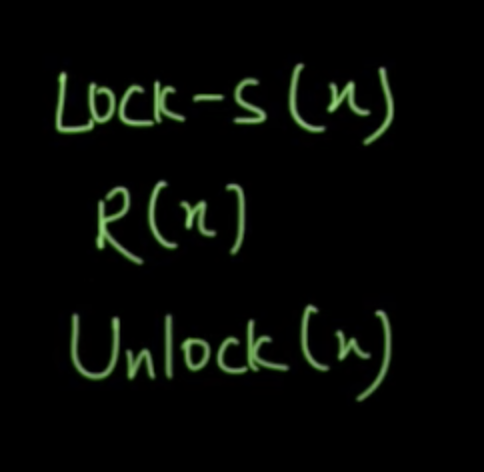 Lock-S(x)
R(x)
Unlock(x)